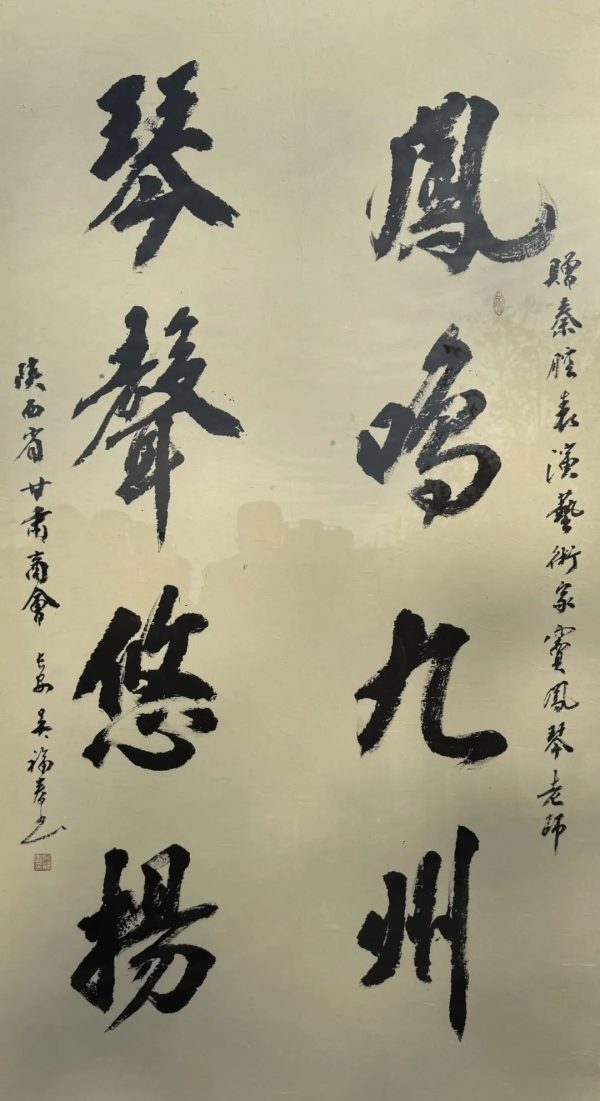 贈秦腔表演藝術家竇鳳琴老師
鳳鳴九州
琴聲悠揚
陝西省甘肅商會 長安吳福春书